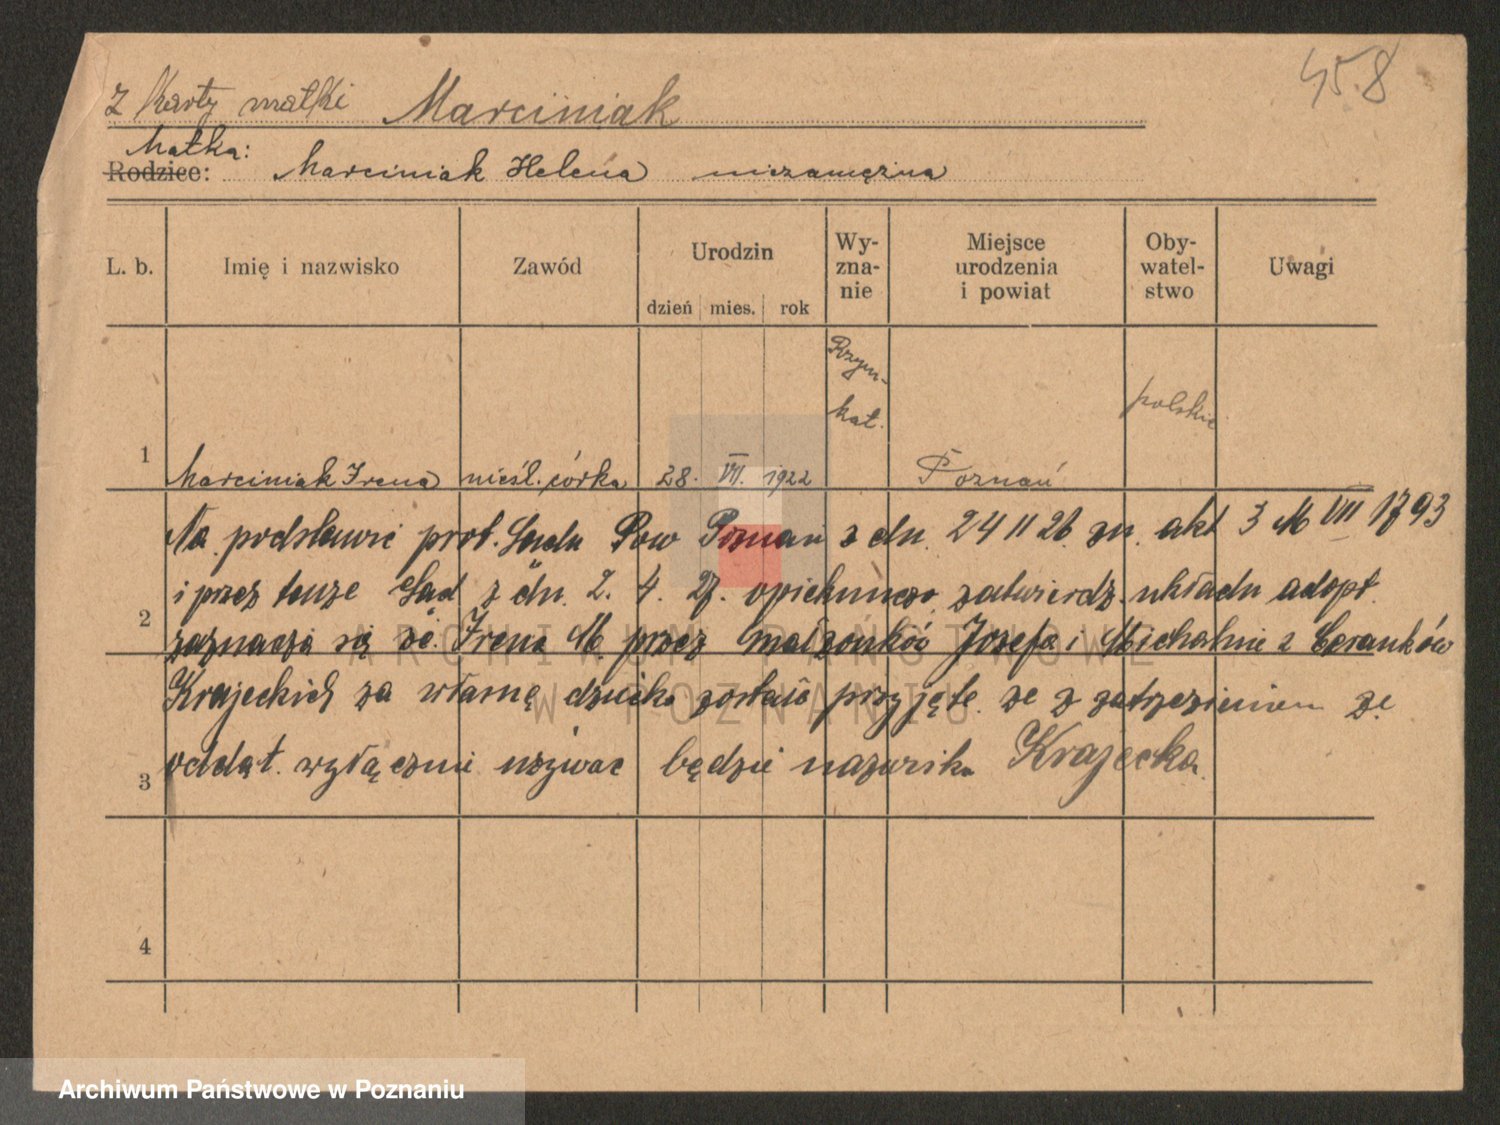 458
z karty matki Marciniak
Matka:
Rodzice: Marciniak Helena niezamężna
L. b. Imię i nazwisko Zawód Urodzin dzień mies. rok Wy-zna-nie Miejsce urodzenia i powiat Oby-watel-stwo Uwagi
Rzym-
kat. polskie
1 Marciniak Irena nieśl. córka 28. VII. 1922 Poznań
Na podstawie prot. Sądu Pow Poznań z dn. 24 11 26 zn. akt 3 M VIII 1793
i przez tenże Sąd z dn. 2. 4. 27. opiekuńczo zatwierdz. układu adopt.
2 zaznacza się że Irena M. przez małżonków Józefa i Michalinę z Ceranków
Krajeckich za własne dziecko została przyjęte ze z zastrzeżeniem że
3 oddąt. wyłącznie używać będzie nazwiska Krajecka.
4
ARCHIWUM PAŃSTWOWE
W POZNANIU
Archiwum Państwowe w Poznaniu